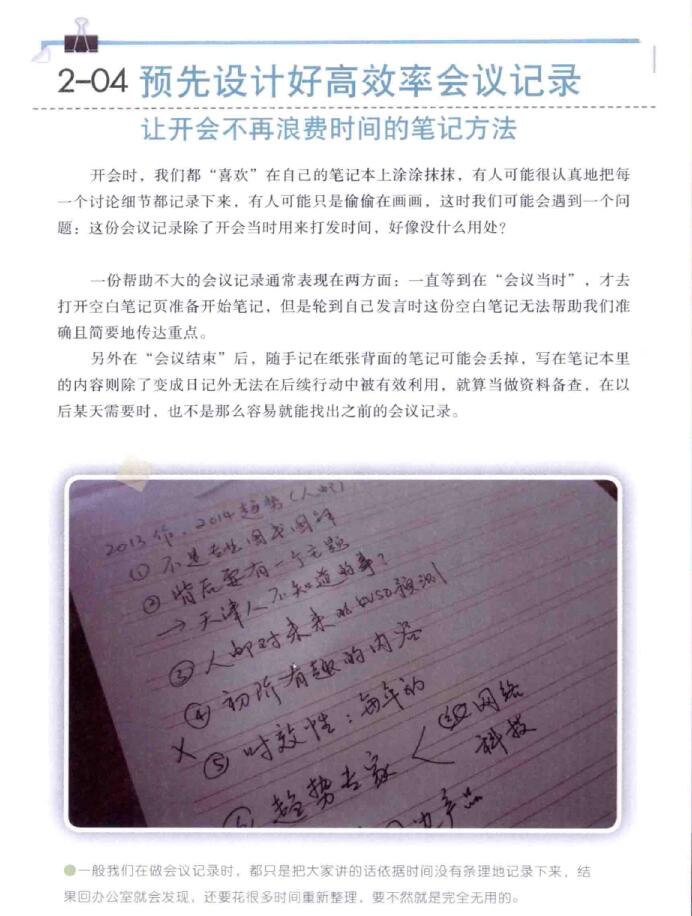 2-04 预先设计好高效率会议记录
让开会不再浪费时间的笔记方法
开会时，我们都“喜欢”在自己的笔记本上涂涂抹抹，有人可能很认真地把每
一个讨论细节都记录下来，有人可能只是偷偷在画画，这时我们可能会遇到一个问
题：这份会议记录除了开会当时用来打发时间，好像没什么用处？
一份帮助不大的会议记录通常表现在两方面：一直等到在“会议当时”，才去
打开空白笔记页准备开始笔记，但是轮到自己发言时这份空白笔记无法帮助我们准
确且简要地传达重点。
另外在“会议结束”后，随手记在纸张背面的笔记可能会丢掉，写在笔记本里
的内容则除了变成日记外无法在后续行动中被有效利用，就算当做资料备查，在以
后某天需要时，也不是那么容易就能找出之前的会议记录。
2013 2014 趋势
① 不是
② 背后要有一个主题
→ 天津人不知道的事？
③ 对未来的 预测
④ 初阶有趣的内容
X ⑤ 时效性：每年的
趋势专家 < 网络
科技
●一般我们在做会议记录时，都只是把大家讲的话依据时间没有条理地记录下来，结
果回办公室就会发现，还要花很多时间重新整理，要不然就是完全无用的。